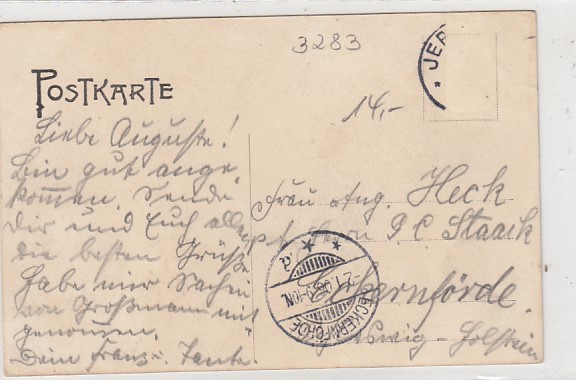 3283
JER
POSTKARTE
14,-
Liebe Auguste!
Bin gut ange-
kommen. Sende
Dir und Euch allen
die besten Grüße
habe mir Sachen
von Großmann mit
genommen.
Dein Franz. Tante.
Frau Aug. Heck
J C Staack
Eckernförde.
Holstein
ECKERNFÖRDE